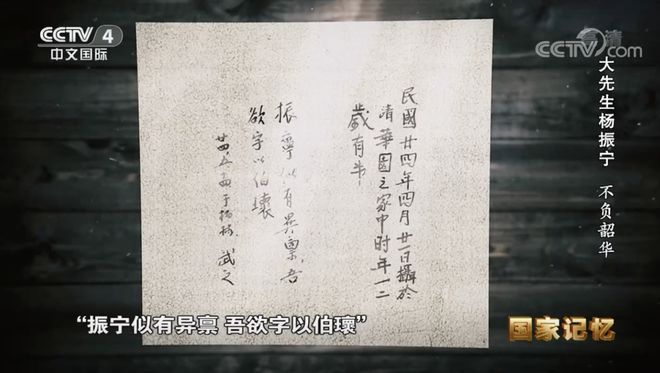 CCTV 4
中文国际
CCTV.com
大先生杨振宁 不负韶华
民國廿四年四月廿一日攝於
清華園之家中时年一二
歲有半
振寧似有異稟吾
欲字以伯瓌
廿四、五、于柏林、武之
“振宁似有异禀 吾欲字以伯瓌”
国家记忆